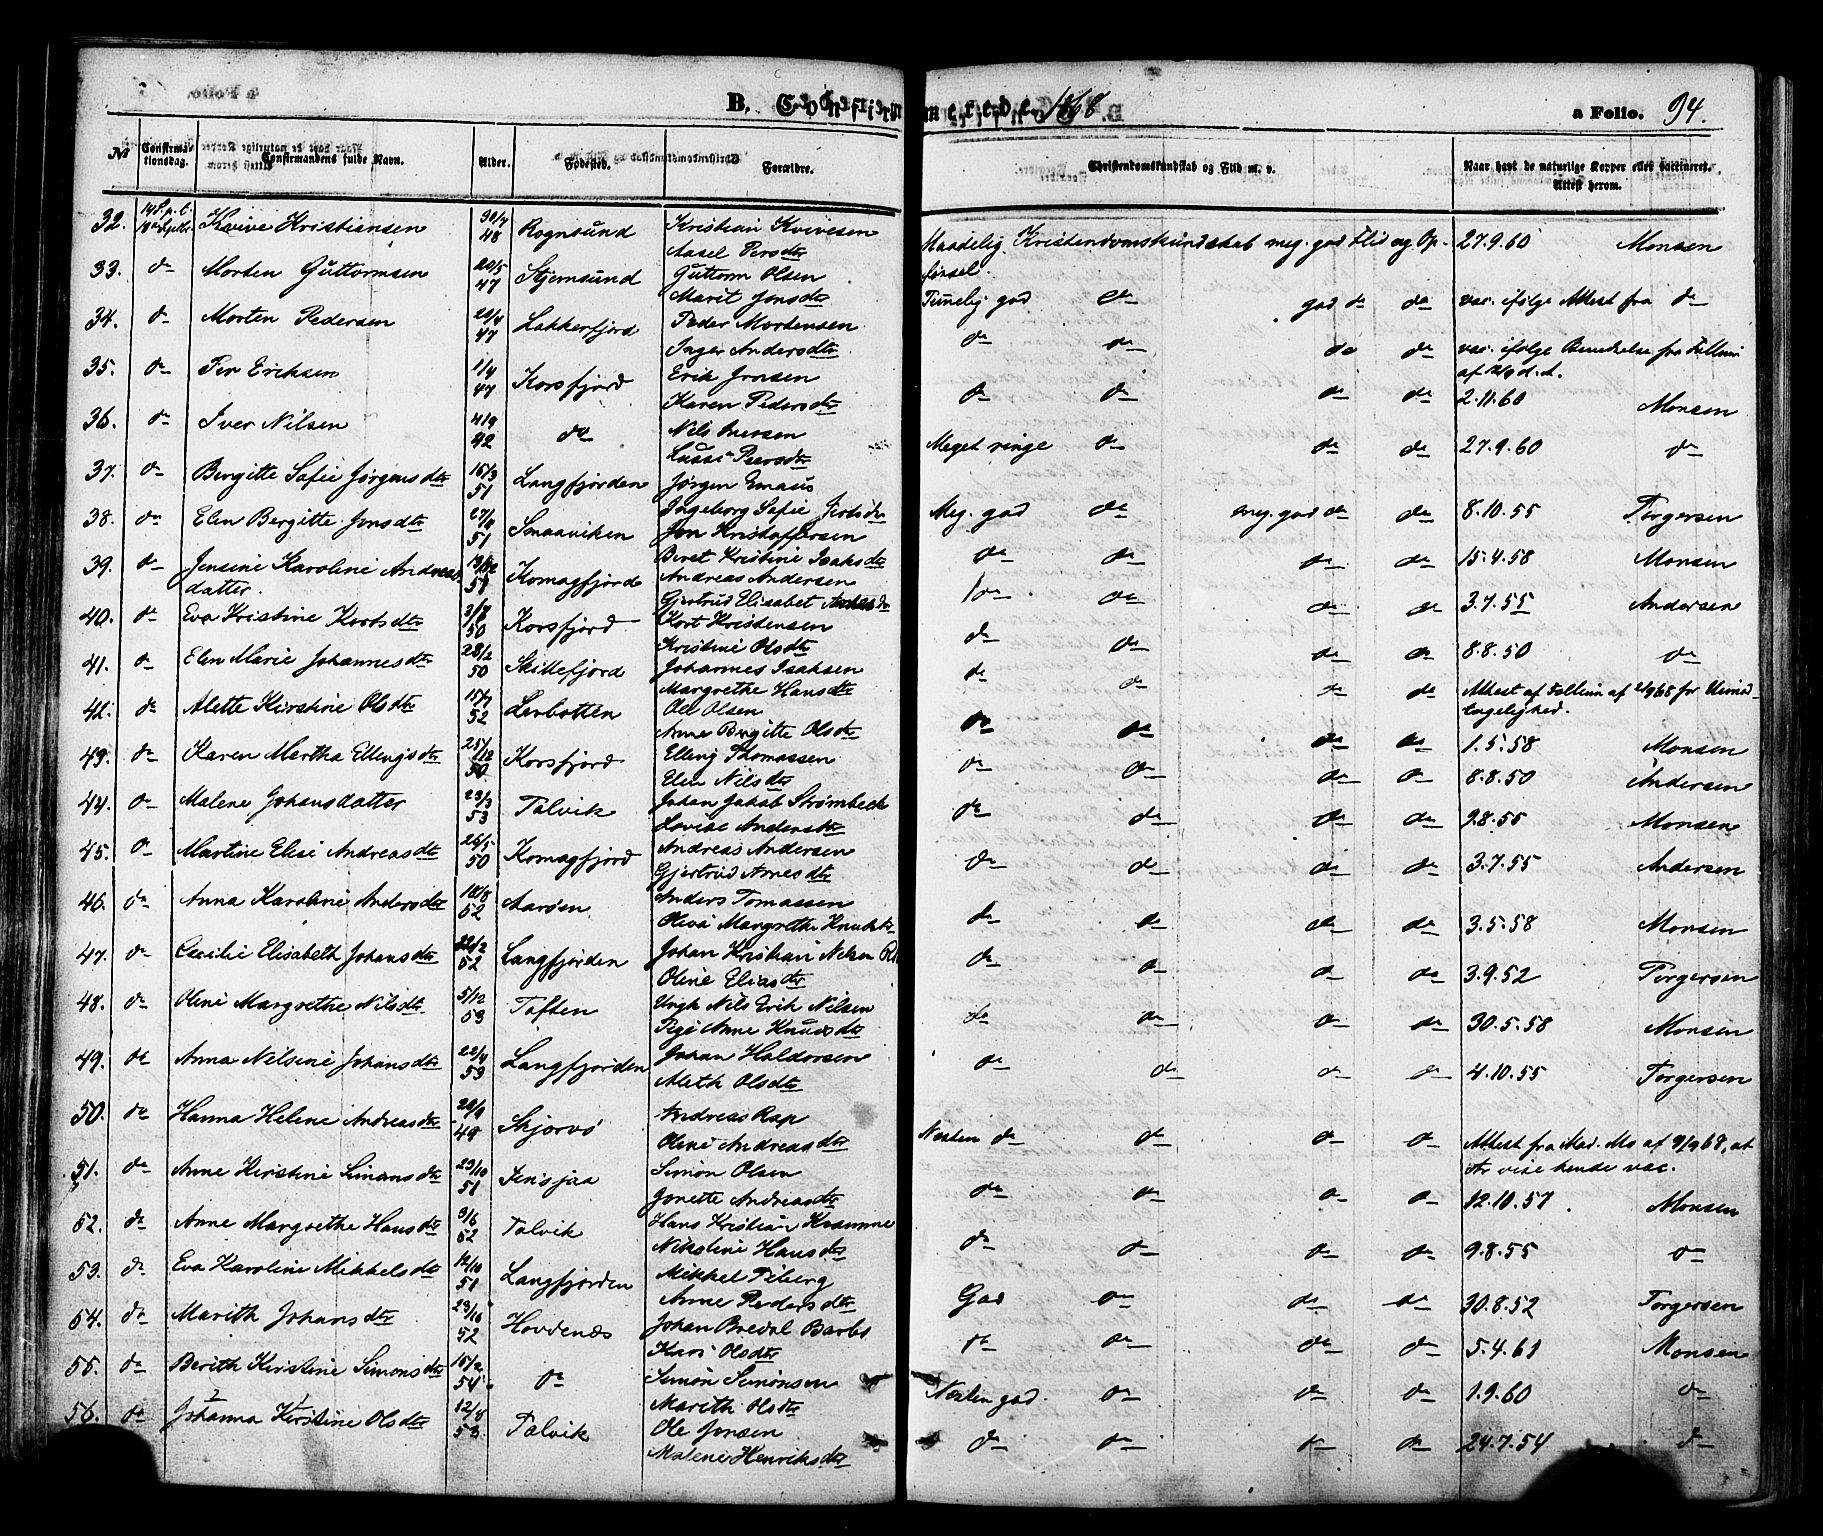 B. Confirmerede. 1868 a Folio. 94.
No Confirmationsdag. Confirmandens fulde Navn. Alder. Fødested. Forældre. Christendomskundskab og Flid m. v. Naar havt de naturlige Kopper eller vaccineret. Attest herom.
32. Kristiansen 30/7 48 Rognsund Kristian Aasel Persdtr Maadelig Kristendomskundskab meg. god Flid og Opførsel. 27.9.60 Monsen
33. do Morten Guttormsen 20/5 47 Stjernsund Guttorm Olsen Marit Jonsdtr Temelig god do god do do vac. ifølge Attest fra do
34. do Morten Pedersen 47 Lakkerfjord Peder Mortensen Inger Andersdtr do do do do vac. ifølge
35. do Per Eriksen 1/4 47 Korsfjord Erik Jonsen Karen Pedersdtr do do do do 2.11.60 Monsen
36. do Iver Nilsen 4/9 42 do Nils Iversen Persdtr Meget ringe do do do 27.9.60 do
37. do Bergitte Sofie Jørgensdtr 16/3 51 Langfjorden Jørgen Emaus Ingeborg Sofie Meg. god do meg. god do do 8.10.55 Torgersen
38. do Elen Bergitte Jonsdtr 51 Smaaviken Jon Kristoffersen Beret Kristine Isaksdtr do do do do 15.4.58 Monsen
39. do Jensine Karoline Andreasdatter. 51 Komagfjord Andreas Andersen Gjertrud Elisabet do do do do 3.7.55 Andersen
40. do Eva Kristine Kortsdtr 50 Korsfjord Kort Kristensen Kristine Olsdtr do do do do 8.8.50 do
41. do Elen Marie Johannesdtr 28/2 50 Skillefjord Johannes Isaksen Margrethe Hansdtr do do do do Attest af
42. do Alette Kirstine Olsdtr 15/7 52 Lerbotten Ole Olsen Anne Birgitte Olsdtr do do do do 1.5.58 Monsen
43. do Karen Martha Ellingsdtr 25/12 50 Korsfjord Elling Thomassen Elen Nilsdtr do do do do 8.8.50 Andersen
44. do Malene Johansdatter 29/3 53 Talvik Johan Jakob Strømbeck Lovise Andersdtr do do do do 9.8.55 Monsen
45. do Martine Elise Andreasdtr 26/5 50 Komagfjord Andreas Andersen Gjertrud Arnesdtr do do do do 3.7.55 Andersen
46. do Anna Karoline Andersdtr 18/8 52 Aarøen Anders Tomassen Oliva Margrethe do do do do 3.5.58 Monsen
47. do Cecilie Elisabeth Johansdtr 22/2 52 Langfjorden Johan Kristian Nilsen Oline Eliasdtr do do do do 3.9.52 Torgersen
48. do Oline Margrethe Nilsdtr 5/12 53 Toften Nils Erik Nilsen Anne Knudsdtr do do do do 30.5.58 Monsen
49. do Anna Nilsine Johansdtr 22/4 53 Langfjorden Johan Haldorsen Aleth Olsdtr do do do do 4.10.55 Torgersen
50. do Hanna Helene Andreasdtr 49 Skjervø Andreas Rap Oline Andreasdtr Nesten do do do do Attest fra Mad. Mo af 9/9 68, at vac.
51. do Anne Kirstine Simonsdtr 23/10 51 Simon Olsen Jonette Andreasdtr do do do do 12.10.57 Monsen
52. do Anne Margrethe Hansdtr 3/6 52 Talvik Hans Kristian Hansdtr do do do do 9.8.55 do
53. do Eva Karoline Mikkelsdtr 12/10 51 Langfjorden Mikkel Anne Pedersdtr God do do do 30.8.52 Torgersen
54. do Marith Johansdtr 23/10 52 Hovdenæs Johan Bredal Kari Olsdtr do do do do 5.4.61 Monsen
55. do Berith Kirstine Simonsdtr 54 do Simon Simonsen Marith Olsdtr Nesten god do do do 1.9.60 do
56. do Johanna Kirstine Olsdtr 12/8 53 Talvik Ole Jonsen Malene Henriksdtr do do do do 24.7.54 do